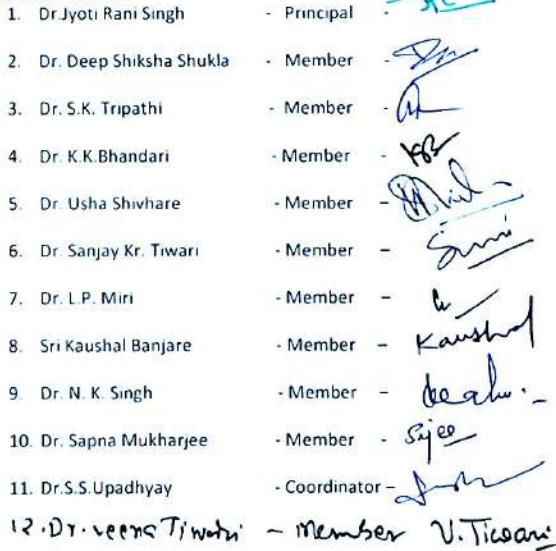 1. Dr.Jyoti Rani Singh - Principal -
2. Dr. Deep Shiksha Shukla - Member -
3. Dr. S.K. Tripathi - Member -
4. Dr. K.K.Bhandari - Member -
5. Dr. Usha Shivhare - Member -
6. Dr. Sanjay Kr. Tiwari - Member -
7. Dr. L.P. Miri - Member -
8. Sri Kaushal Banjare - Member - Kaushal
9. Dr. N. K. Singh - Member -
10. Dr. Sapna Mukharjee - Member -
11. Dr.S.S.Upadhyay - Coordinator -
12. Dr. veena Tiwari - Member V. Tiwari